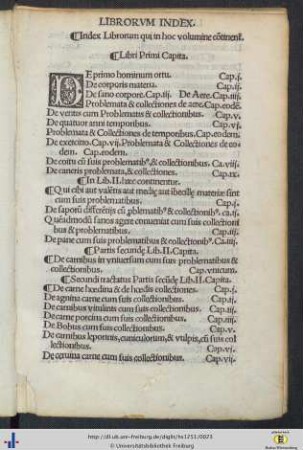 LIBRORVM INDEX.
¶Index Librorum qui in hoc volumine cōtinent.
¶Libri Primi Capita.
DE primo hominum ortu. Cap.j.
De corporis materia. Cap.ij.
De sano corpore.Cap.iij. De Aere.Cap.iiij.
Problemata & collectiones de aere.Cap.eodē.
De ventis cum Problematis & collectionibus. Cap.v.
De quatuor anni temporibus. Cap.vj.
Problemata & Collectiones de temporibus.Cap.eodem.
De exercitio.Cap.vij.Problemata & Collectiones de eo
dem. Cap.eodem.
De coitu cū suis problematibꝰ.& collectionibus. Ca.viij.
De cancris problemata,& collectiones. Cap.ix.
¶In Lib.II.hæc continentur.
¶Qui cibi aut valēris aut medię aut ibecillę materiæ sint
cum suis problematibus. Cap.j.
De saporū differētijs cū ꝓblematibꝰ & collectionibꝰ.ca.ij.
Quēadmodū sanos agere conueniat cum suis collectioni
bus & problematibus. Cap.iij.
De pane cum suis problematibus & collectionibꝰ.Ca.iiij.
¶Partis secundę Lib.II.Capita.
¶De carnibus in vniuersum cum suis problematibus &
collectionibus. Cap.vnicum.
¶Secundi tractatus Partis secūdę Lib.II.Capita.
¶De carne hœdina & de hœdis collectiones. Cap.j.
De agnina carne cum suis collectionibus. Cap.ij.
De carnibus vitulinis cum suis collectionibus. Cap.iij.
De carne porcina cum suis collectionibus. Cap.iiij.
De Bobus cum suis collectionibus. Cap.v.
De carnibus leporinis,cuniculorum,& vulpis,cū suis col
lectionibus. Cap.vj.
De ceruina carne cum suis collectionibus. Cap.vij.
http://dl.ub.uni-freiburg.de/diglit/hs1251/0023
© Universitätsbibliothek Freiburg